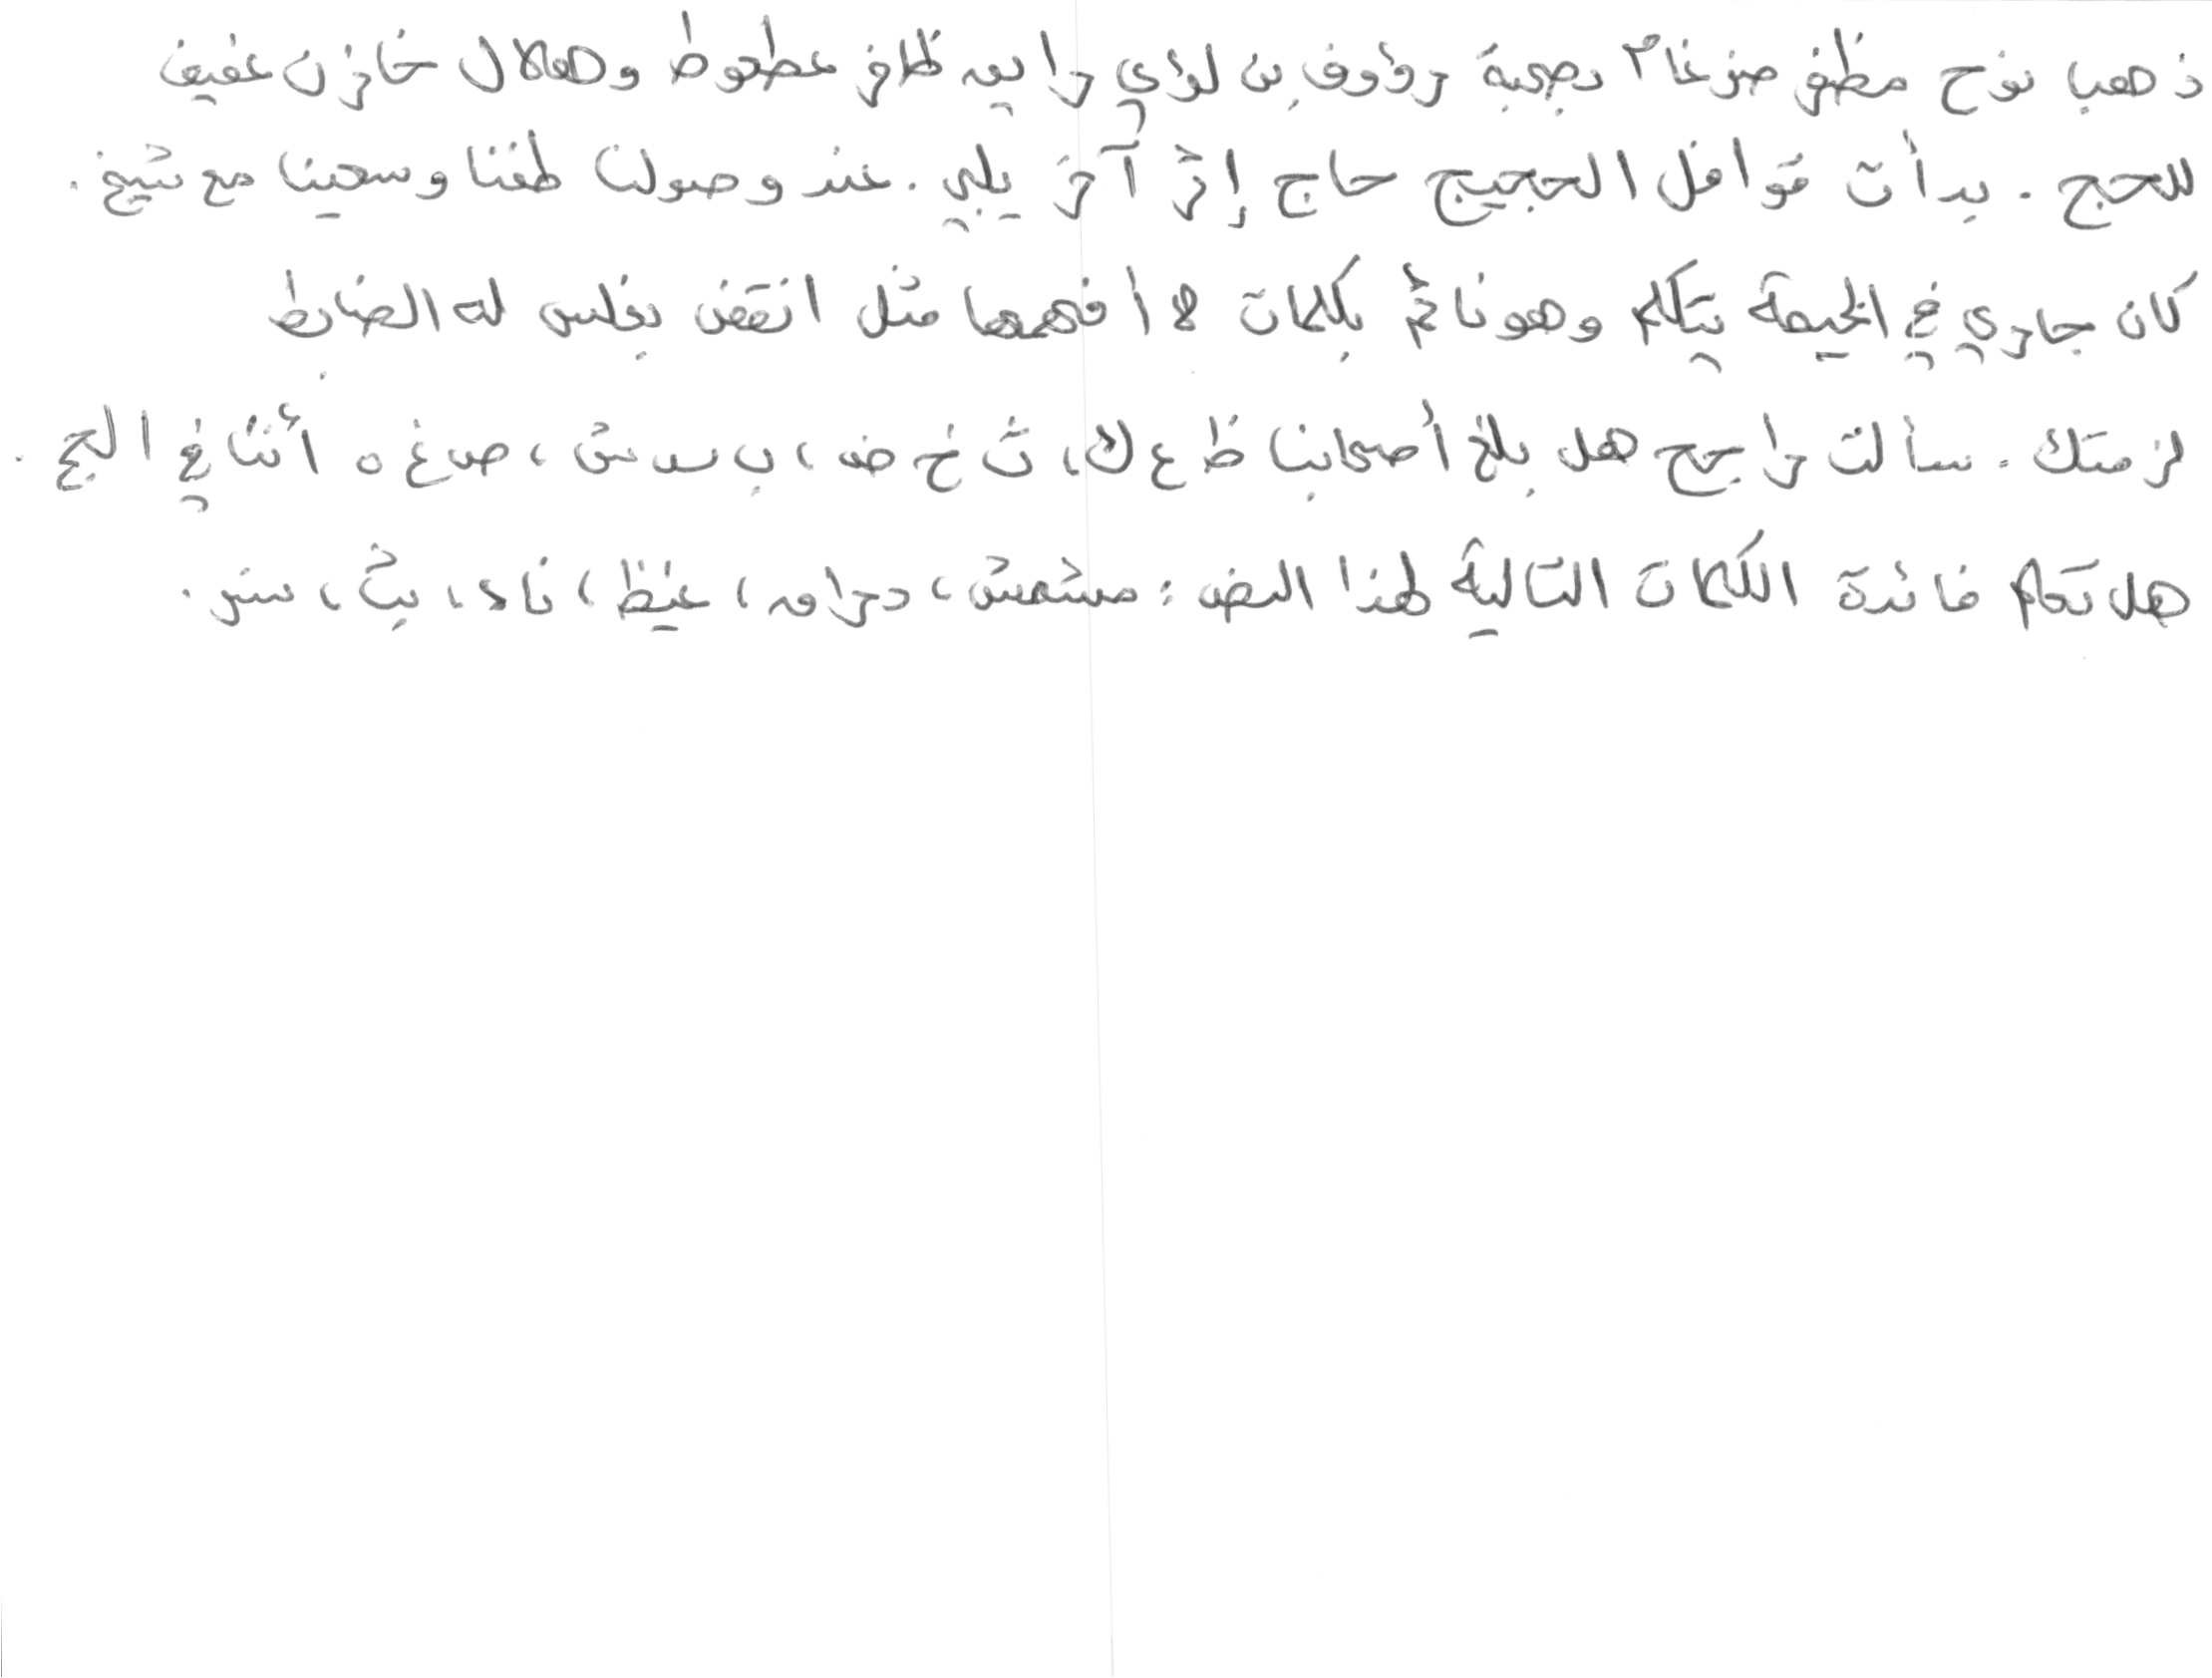 ذهب نوح مظفر ضرغام بصحبة رؤوف بن لؤي رايع ظافر عطعوط وهلال خازن عفيف
للحج . بدأت قوافل الحجيج حاج إثر آخر يلبي . عند وصولنا طفنا وسعينا مع شيخ .
كان جاري في الخيمة يتكلم وهو نائم بكلمات لا أفهمها مثل انقض بغلس له الضابط
لزمتك . سألت راجح هل بلغ أصحابنا ظ ع ك، ث خ ض ، ب س ش ، ص غ ه أثنا في الحج .
هل تعلم فائدة الكلمات التالية لهذا النص : مشمش ، دراهم ، غيظ ، ناء ، بث ، ستر .